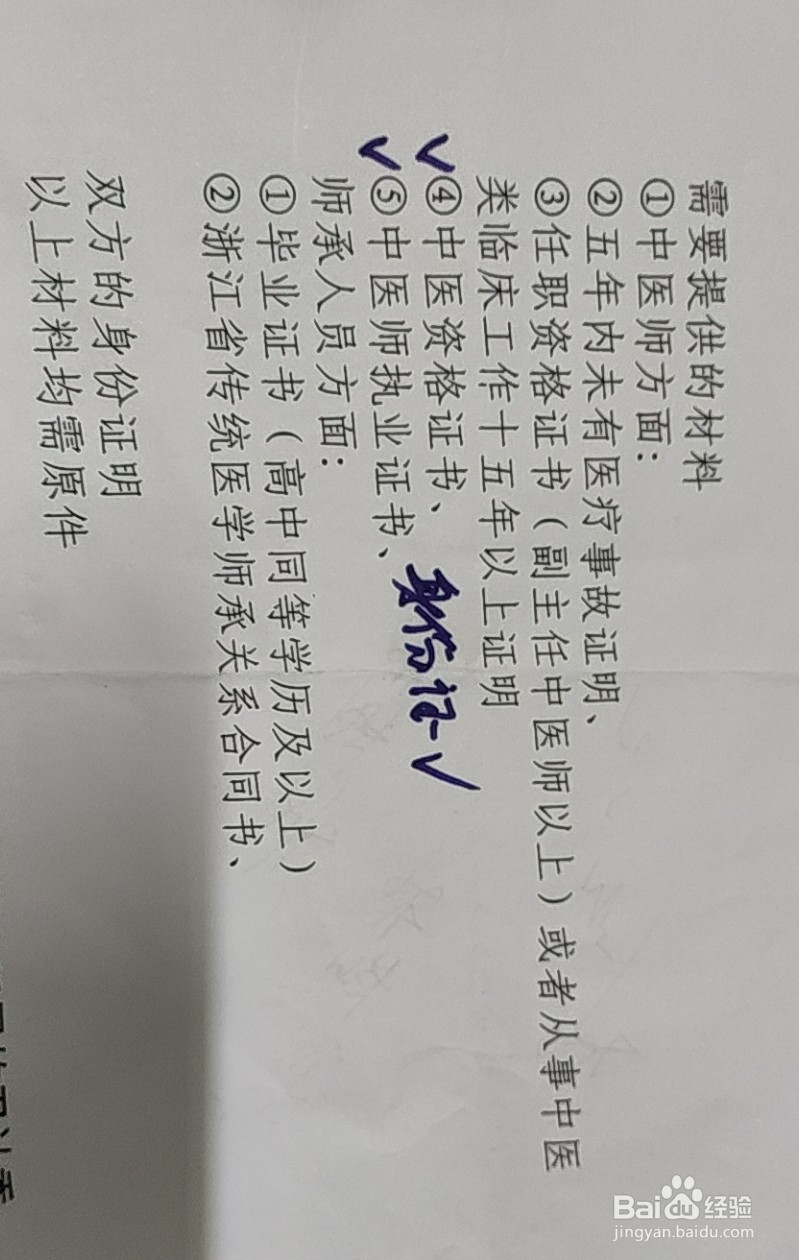 需要提供的材料
①中医师方面：
②五年内未有医疗事故证明、
③任职资格证书（副主任中医师以上）或者从事中医
类临床工作十五年以上证明
√④中医资格证书、
√⑤中医师执业证书、身份证√
师承人员方面：
①毕业证书（高中同等学历及以上）
②浙江省传统医学师承关系合同书、
双方的身份证明
以上材料均需原件
Baidu经验
jingyan.baidu.com